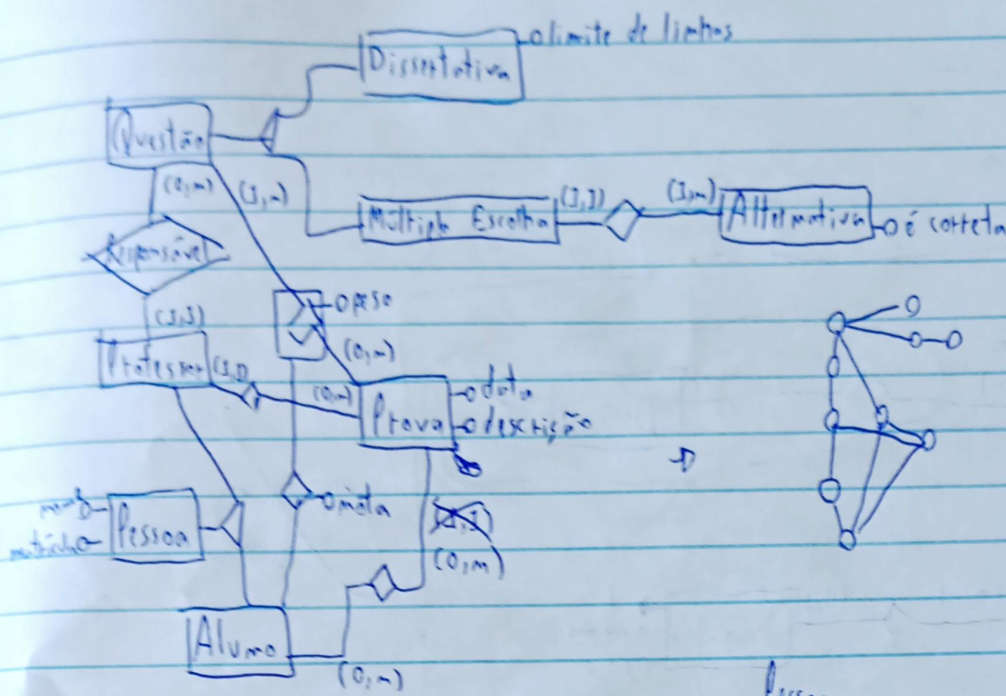 limite de linhas
Dissertativa
Questão
(0,n)
(1,n)
Múltipla Escolha
(1,1)
(1,n)
Alternativa
é correta
Responsável
(1,1)
peso
(0,n)
Professor
(1,1)
(0,n)
Prova
data
descrição
nome
matrícula
Pessoa
nota
(0,n)
Aluno
(0,n)